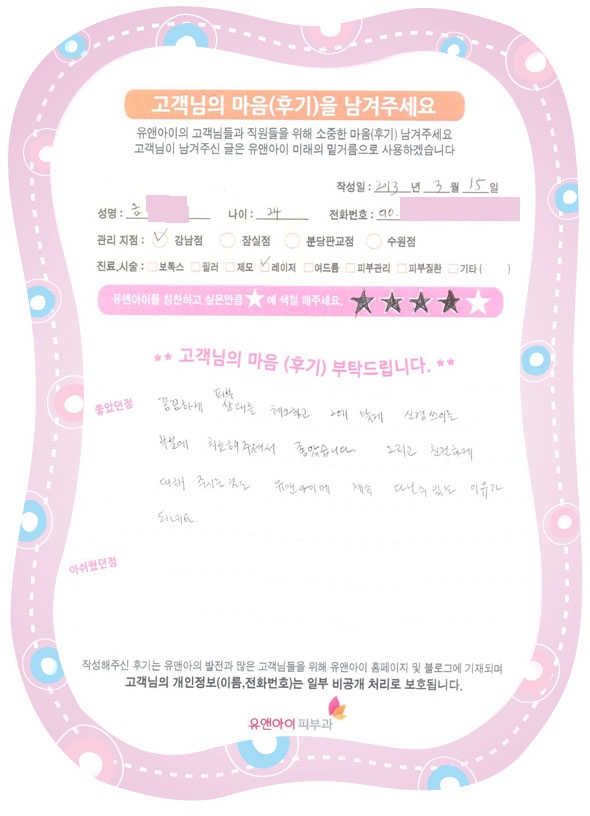 고객님의 마음(후기)을 남겨주세요
유앤아이의 고객님들과 직원들을 위해 소중한 마음(후기) 남겨주세요
고객님이 남겨주신 글은 유앤아이 미래의 밑거름으로 사용하겠습니다
작성일 : 2013 년 3 월 15 일
성명 : 나이 : 24 전화번호 : 010.
관리 지점 : 강남점 잠실점 분당판교점 수원점
진료,시술 : 보톡스 필러 제모 레이저 여드름 피부관리 피부질환 기타 ( )
유앤아이를 칭찬하고 싶은만큼 ★ 에 색칠 해주세요. ★★★★★
** 고객님의 마음 (후기) 부탁드립니다. **
좋았던점 꼼꼼하게 피부 상태를 체크하고 그에 맞게 신경쓰이는
부분에 치료해주셔서 좋았습니다. 그리고 친절하게
대해 주시는것도 유앤아이에 계속 다닐수 있는 이유가
되네요
아쉬웠던점
작성해주신 후기는 유앤아의 발전과 많은 고객님들을 위해 유앤아이 홈페이지 및 블로그에 기재되며
고객님의 개인정보(이름,전화번호)는 일부 비공개 처리로 보호됩니다.
유앤아이 피부과